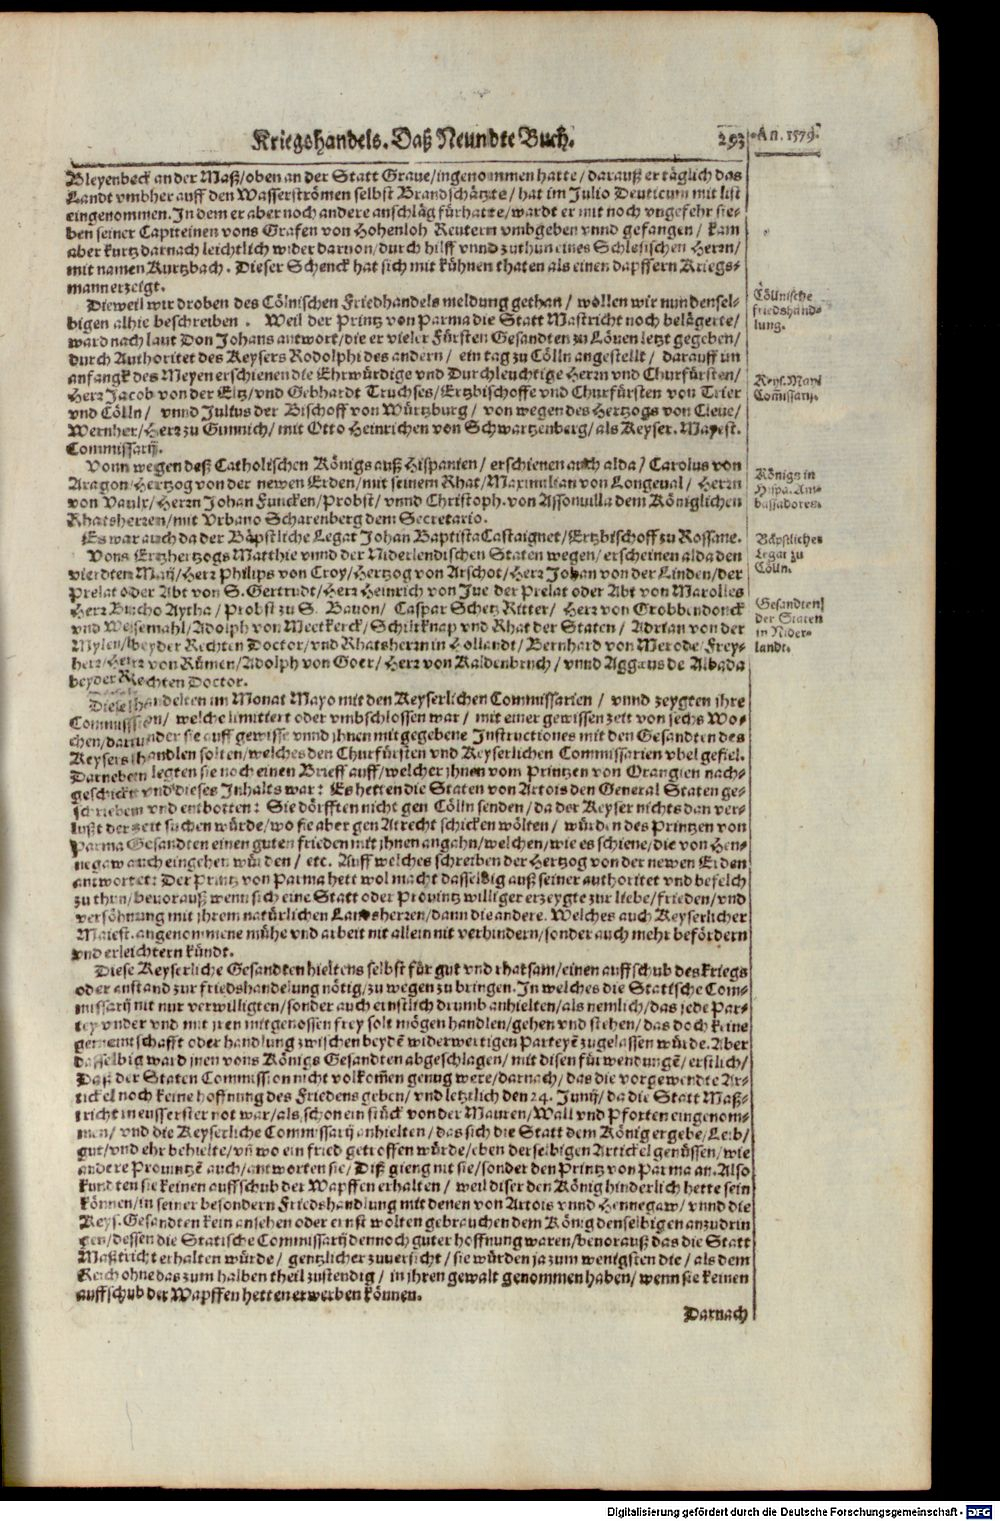 Kriegshandels. Daß Neundte Buch.
293
An. 1579.
Bleyenbeck an der Maß/oben an der Statt Graue/ingenommen hatte/darauß er täglich das
Landt vmbher auff den Wasserströmen selbst Brandschätzte/hat im Julio Deuticum mit list
eingenommen. In dem er aber noch andere anschläg fürhatte/wardt er mit noch vngefehr sie-
ben seiner Capiteinen vons Grafen von Hohenloh Reutern vmbgeben vnnd gefangen/ kam
aber kurtz darnach leichtlich wider daruon/durch hilff vnnd zuthun eines Schlesischen Herrn/
mit namen Kurtzbach. Dieser Schenck hat sich mit kühnen thaten als einen dapffern Kriegs-
mann erzeigt.
Dieweil wir droben des Cölnischen Friedhandels meldung gethan/ wöllen wir nun densel-
bigen alhie beschreiben. Weil der Printz von Parma die Statt Mastricht noch belägerte/
ward nach laut Don Johans antwort/die er vieler Fürsten Gesandten zu Löuen letzt gegeben/
durch Authoritet des Keysers Rodolphi des andern/ ein tag zu Cölln angestellt/ darauff im
anfangk des Meyen erschienen die Ehrwürdige vnd Durchleuchtige Herrn vnd Churfürsten/
Herr Jacob von der Eltz/vnd Gebhardt Truchses/Ertzbischoffe vnd Churfürsten von Trier
vnd Cölln/ vnnd Julius der Bischoff von Würtzburg/ von wegen des Hertzogs von Cleue/
Wernher/Herr zu Gimnich/ mit Otto Heinrichen von Schwartzenberg/als Keyser. Mayest.
Commissarij.
Vonn wegen deß Catholischen Königs auß Hispanien/ erschienen auch alda/ Carolus von
Aragon/Hertzog von der newen Erden/mit seinem Rhat/Maximilian von Longeual/ Herrn
von Vaulx/Herrn Johan Funcken/Probst/ vnnd Christoph. von Assonuilla dem Königlichen
Rhatsherren/mit Vrbano Scharenberg dem Secretario.
Es war auch da der Bäpstliche Legat Johan Baptista Castaignet/Ertzbischoff zu Rossane.
Vons Ertzhertzogs Matthie vnnd der Niderlendischen Staten wegen/erscheinen alda den
vierdten Maij/Herr Philips von Croy/Hertzog von Arschot/Herr Johan von der Linden/der
Prelat oder Abt von S. Gertrudt/Herr Heinrich von Jue der Prelat oder Abt von Marolles
Herr Bucho Aytha/Probst zu S. Bauon/ Caspar Schetz Ritter/ Herr von Grobbendonck
vnd Wesemahl/Adolph von Meetkerck/Schiltknap vnd Rhat der Staten/ Adrian von der
Mylen/beyder Rechten Doctor/vnd Rhatsherrn in Hollandt/Bernhard von Merode/Frey-
herr/Herr von Rümen/Adolph von Goer/Herr von Kaldenbruch/vnnd Aggæus de Albada
beyder Rechten Doctor.
Diese handelten im Monat Mayo mit den Keyserlichen Commissarien/ vnnd zeygten ihre
Commission/ welche limittert oder vmbschlossen war/ mit einer gewissen zeit von sechs Wo-
chen/darunder sie auff gewisse vnnd ihnen mitgegebene Instructiones mit den Gesandten des
Keysers handlen solten/welches den Churfürsten vnd Keyserlichen Commissarien vbel gefiel.
Darneben legten sie noch einen Brieff auff/welcher ihnen vom Printzen von Orangien nach-
geschickt vnd dieses Inhalts war: Es hetten die Staten von Artois den General Staten ge-
schrieben vnd entbotten: Sie dörfften nicht gen Cölln senden/da der Keyser nichts dan ver-
lust der zeit suchen würde/wo sie aber gen Atrecht schicken wölten/ würden des Printzen von
Parma Gesandten einen guten frieden mit ihnen angahn/welchen/wie es schiene/die von Hen-
negaw auch eingehen würden/ etc. Auff welches schreiben der Hertzog von der newen Erden
antwortet: Der Printz von Parma hett wol macht dasselbig auß seiner authoritet vnd befelch
zu thun/beuorauß wenn sich eine Statt oder Prouintz williger erzeygte zur liebe/frieden/vnd
versöhnung mit ihrem natürlichen Landsherren/dann die andere. Welches auch Keyserlicher
Maiest. angenommene mühe vnd arbeit nit allein nit verhindern/sonder auch mehr befördern
vnd erleichtern kündt.
Diese Keyserliche Gesandten hieltens selbst für gut vnd rhatsam/einen auffschub des kriegs
oder anstand zur friedshandelung nötig/zu wegen zu bringen. In welches die Statische Com-
missarij nit nur verwilligten/sonder auch ernstlich drumb anhielten/als nemlich/das jede Par-
tey vnder vnd mit jren mitgenossen frey solt mögen handlen/gehen vnd stehen/das doch keine
gemeintschafft oder handlung zwischen beydē widerwertigen Parteyē zugelassen würde. Aber
dasselbig ward jnen vons Königs Gesandten abgeschlagen/mit disen fürwendungē/erstlich/
Daß der Staten Commission nicht volkom̄en genug were/darnach/das die vorgewendte Ar-
tickel noch keine hoffnung des Friedens geben/vnd letztlich den 24. Junij/da die Statt Maß-
tricht in eusserster not war/als schon ein stück von der Mauren/Wall vnd Pforten eingenom-
men/ vnd die Keyserliche Commissarij anhielten/das sich die Statt dem König ergebe/Leib/
gut/vnd ehr behielte/vn̄ wo ein fried getroffen würde/eben derselbigen Artickel genüssen/wie
andere Prouintzē auch/antworten sie/Diß gieng nit sie/sonder den Printz von Parma an. Also
kundten sie keinen auffschub der Wapffen erhalten/ weil diser den König hinderlich hette sein
können/in seiner besondern Friedshandlung mit denen von Artois vnnd Hennegaw/vnnd die
Keys. Gesandten kein ansehen oder ernst wolten gebrauchen dem König denselbigen anzudrin
gen/dessen die Statische Commissarij dennoch guter hoffnung waren/benorauß das die Statt
Mastricht erhalten würde/ gentzlicher zuuersicht/sie würden ja zum wenigsten die/als dem
Reich ohne das zum halben theil zustendig/ in ihren gewalt genommen haben/wenn sie keinen
auffschub der Wapffen hetten erwerben können.
Darnach
Cöllnische
friedshand-
lung.
Keys. May.
Com̄issarij.
Königs in
Hispa. Am-
bassadores.
Bäpstliches
Legat zu
Cölln.
Gesandten
der Staten
in Nider-
landt.
Digitalisierung gefördert durch die Deutsche Forschungsgemeinschaft - DFG